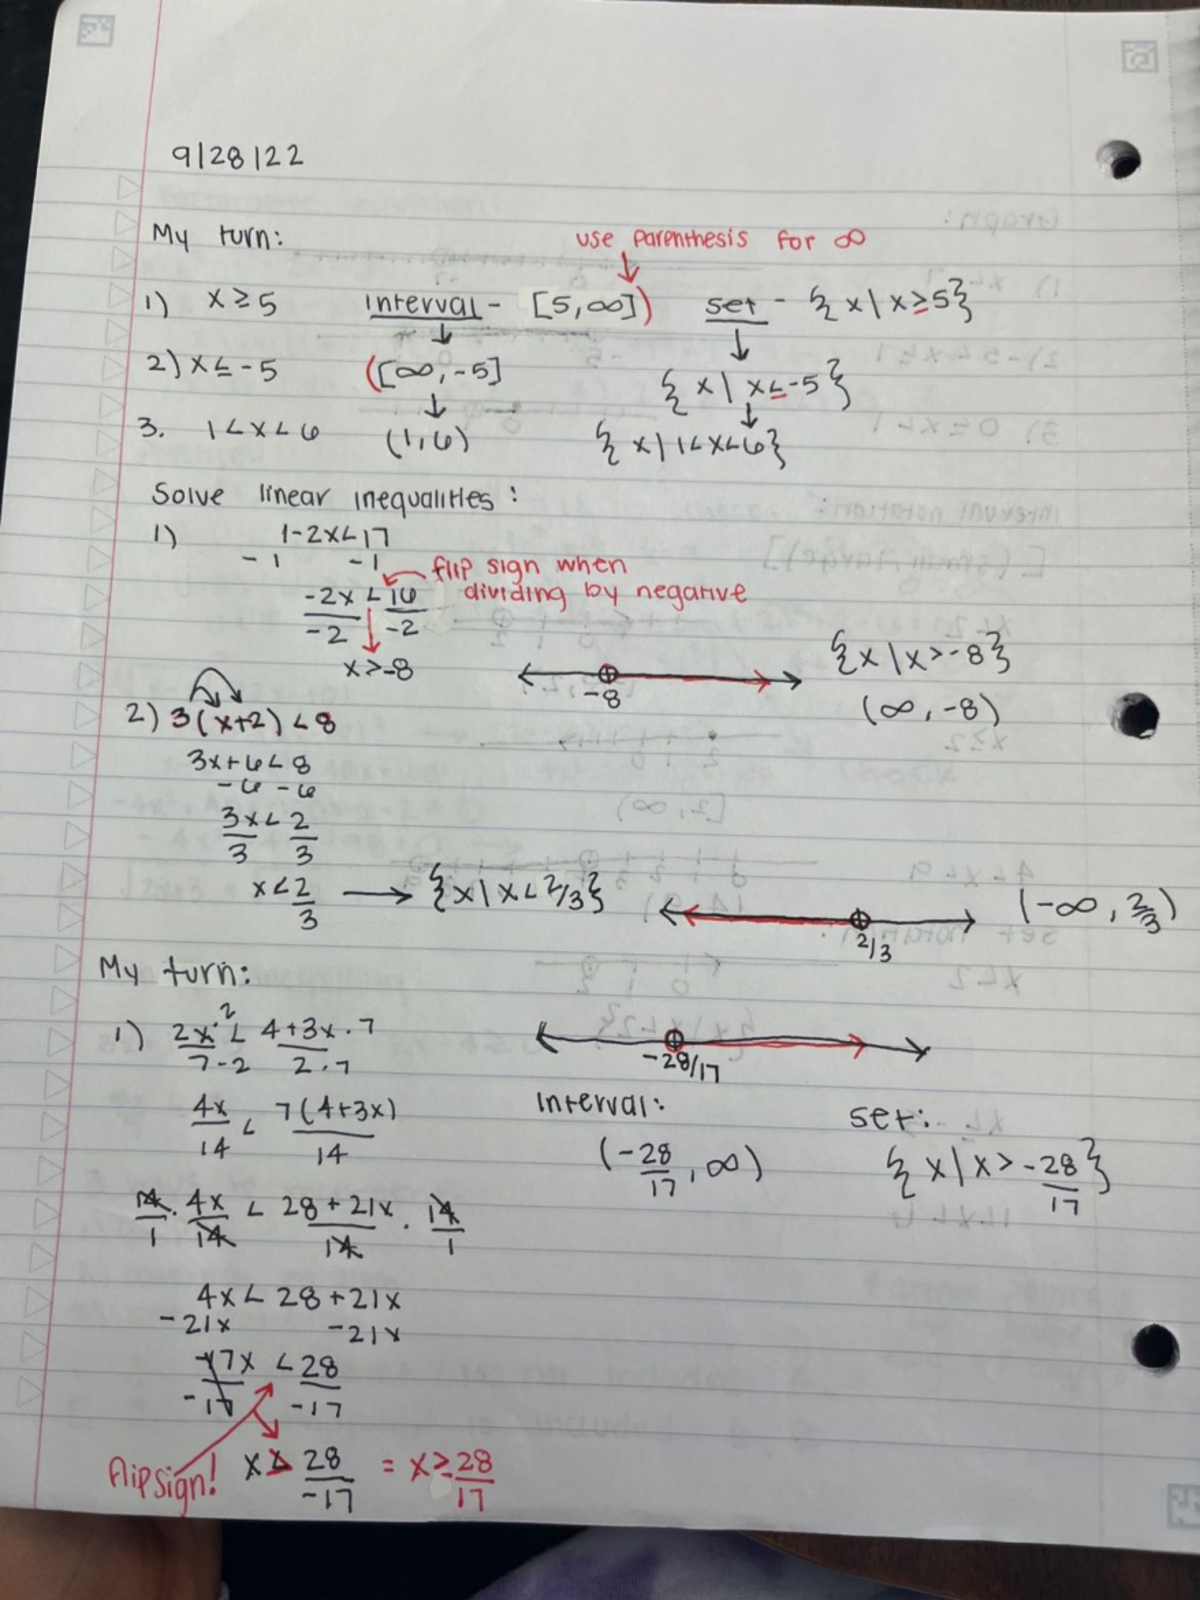 9/28/22
My turn:
use parenthesis for ∞
1) x ≥ 5 interval - [5, ∞]) set - {x | x ≥ 5}
2) x ≤ -5 ([∞, -5] {x | x ≤ -5}
3. 1 < x < 6 (1, 6) {x | 1 < x < 6}
Solve linear inequalities:
1) 1 - 2x < 17
-1 -1
flip sign when
dividing by negative
-2x/-2 < 16/-2
x > -8
-8
{x | x > -8}
(∞, -8)
2) 3(x+2) < 8
3x + 6 < 8
-6 -6
3x/3 < 2/3
x < 2/3 → {x | x < 2/3}
2/3
(-∞, 2/3)
My turn:
1) 2x·2/7·2 < 4+3x·7/2·7
-28/17
4x/14 < 7(4+3x)/14
interval: set:
(-28/17, ∞) {x | x > -28/17}
14/1 · 4x/14 < 28+21x/14 · 14/1
4x < 28 + 21x
-21x -21x
-17x/-17 < 28/-17
flip sign! x > 28/-17 = x > -28/17